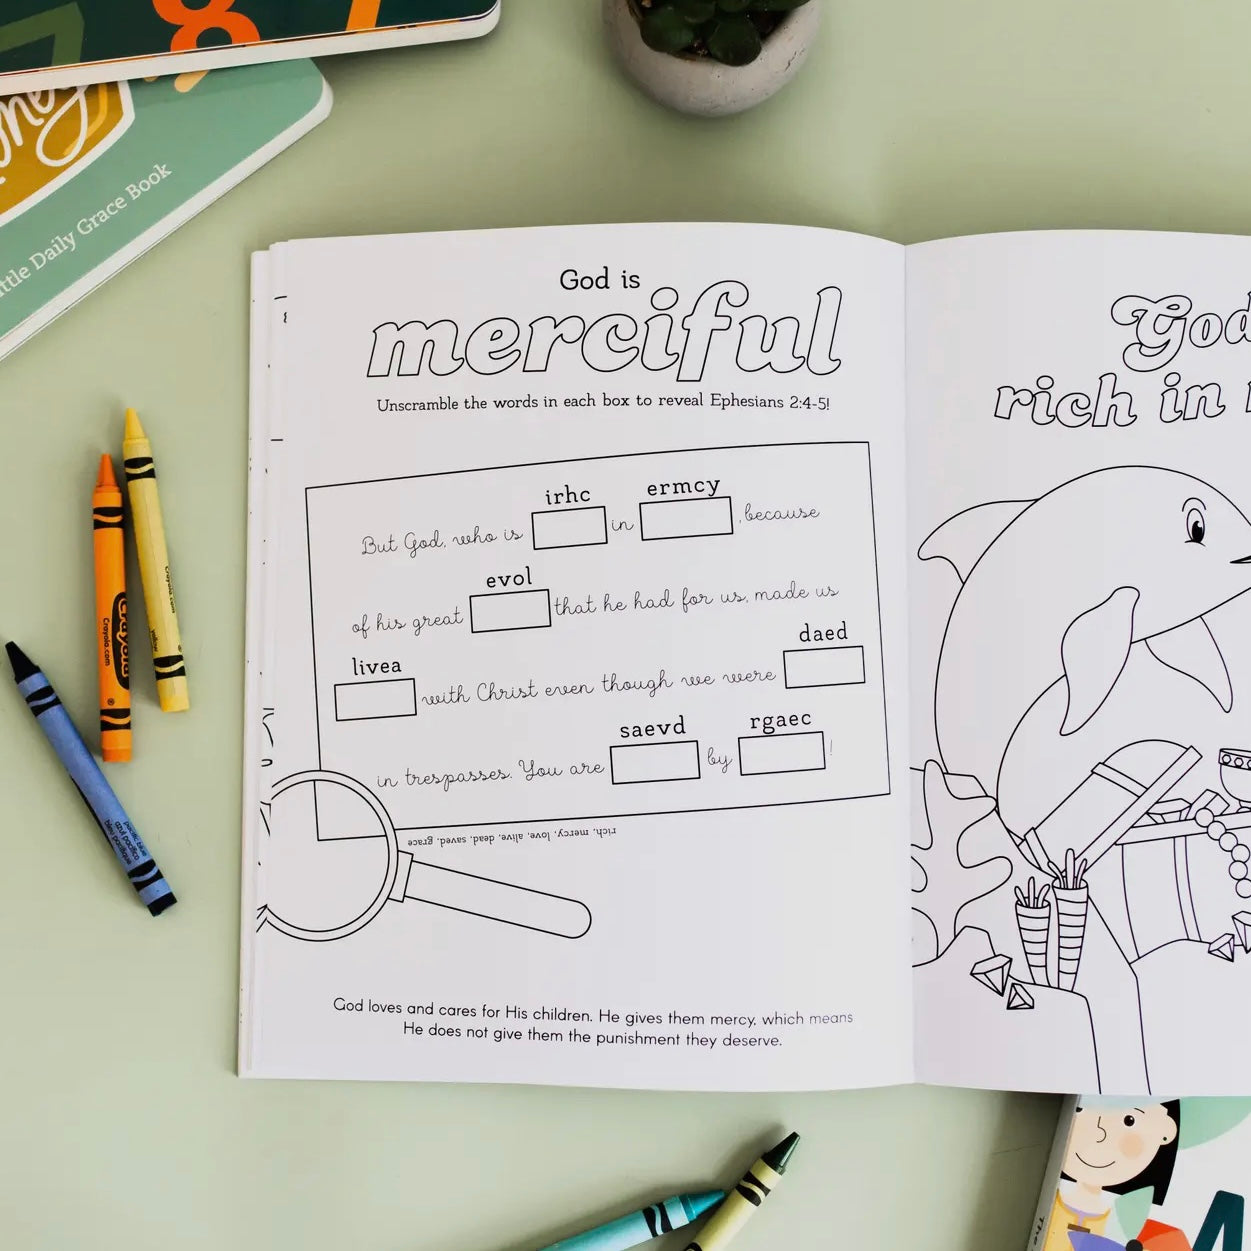 Little Daily Grace Book
God is
merciful
Unscramble the words in each box to reveal Ephesians 2:4-5!
irhc ermcy
But God, who is in , because
evol
of his great that he had for us, made us
livea daed
with Christ even though we were
saevd rgaec
in trespasses. You are by !
rich, mercy, love, alive, dead, saved, grace
God loves and cares for His children. He gives them mercy, which means
He does not give them the punishment they deserve.
God
rich in
Crayola
Crayola.com
Crayola.com
yellow
pacific blue
azul pacífico
bleu pacifique
The